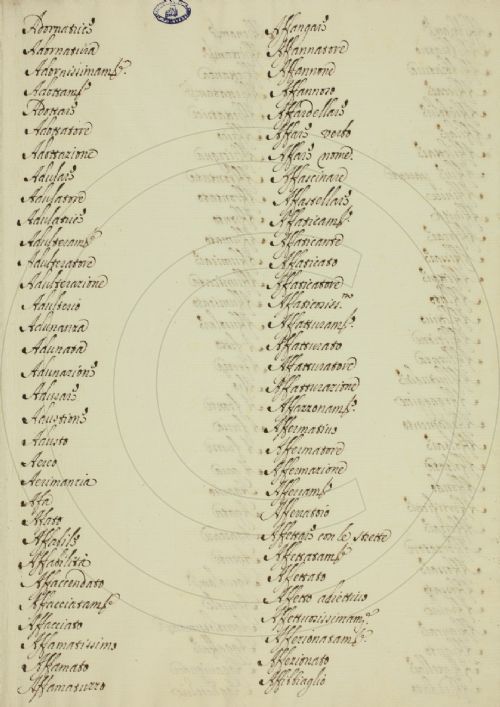 Adornatrice
Adornatura
Adornissimamte.
Adottamte.
Adottare
Adottatore
Adottazione
Adulare
Adulatore
Adulatrice
Adulteramte.
Adulteratore
Adulterazione
Adulterio
Adunanza
Adunata
Adunazione
Adusare
Adustione
Adusto
Aereo
Aerimanzia
Afa
Afato
Affabile
Affabilità
Affaccendato
Affacciatamte.
Affacciato
Affamatissimo
Affamato
Affamatuzzo
Affangare
Affannatore
Affannone
Affannoso
Affardellare
Affare verbo
Affare nome.
Affascinare
Affastellare
Affaticamte.
Affaticante
Affaticato
Affaticatore
Affatturamte.
Affatturato
Affatturatore
Affatturazione
Affazzonamte.
Affermativo
Affermatore
Affermazione
Afferramte.
Affettare con le strette
Affettatamte.
Affettato
Affetto adiettivo
Affettuosissimamte.
Affezionatamte.
Affezionato
Affibbiaglio